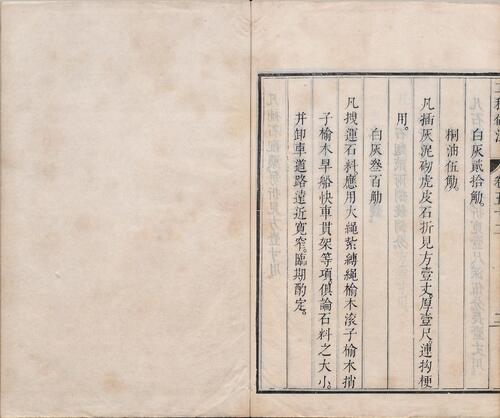 白灰貳拾觔。
桐油伍觔。
凡插灰泥砌虎皮石折見方壹丈。厚壹尺。連抅梗
用。
白灰叄百觔
凡拽運石料。應用大繩。紥縛繩榆木滾子榆木捎
子榆木旱船快車貫架等項。俱論石料之大小。
幷卸車道路遠近寬窄。臨期酌定。
卷五十二